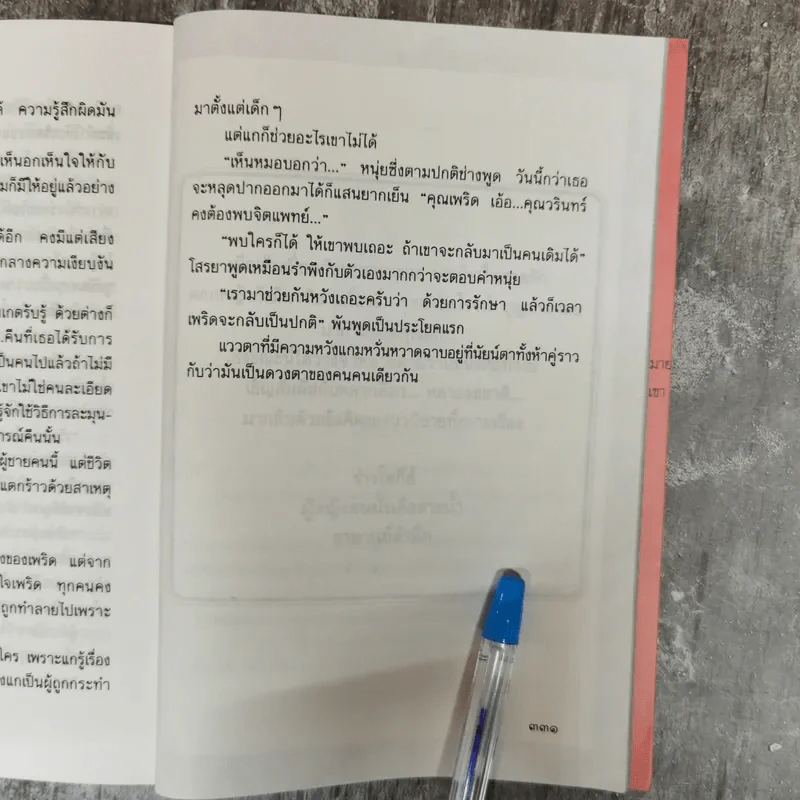 ความรู้สึกผิดมัน
เห็นอกเห็นใจให้กับ
มก็มีให้อยู่แล้วอย่าง
ด้อีก คงมีแต่เสียง
กลางความเงียบงัน
ด้วยต่างก็
คืนที่เธอได้รับการ
เป็นคนไปแล้วถ้าไม่มี
เขาไม่ใช่คนละเอียด
รู้จักใช้วิธีการละมุน-
การณ์คืนนั้น
ผู้ชายคนนี้ แต่ชีวิต
แตกร้าวด้วยสาเหตุ
งของเพริด แต่จาก
ใจเพริด ทุกคนคง
ถูกทำลายไปเพราะ
ใคร เพราะแกรู้เรื่อง
งแกเป็นผู้ถูกกระทำ
มาตั้งแต่เด็ก ๆ
แต่แกก็ช่วยอะไรเขาไม่ได้
“เห็นหมอบอกว่า...” หนุ่ยซึ่งตามปกติช่างพูด วันนี้กว่าเธอ
จะหลุดปากออกมาได้ก็แสนยากเย็น “คุณเพริด เอ้อ...คุณวรินทร์
คงต้องพบจิตแพทย์...”
“พบใครก็ได้ ให้เขาพบเถอะ ถ้าเขาจะกลับมาเป็นคนเดิมได้”
โสรยาพูดเหมือนรำพึงกับตัวเองมากกว่าจะตอบคำหนุ่ย
“เรามาช่วยกันหวังเถอะครับว่า ด้วยการรักษา แล้วก็เวลา
เพริดจะกลับเป็นปกติ” พันพูดเป็นประโยคแรก
แววตาที่มีความหวังแกมหวั่นหวาดฉาบอยู่ที่นัยน์ตาทั้งห้าคู่ราว
กับว่ามันเป็นดวงตาของคนคนเดียวกัน
มาย
เขา
๓๓๑